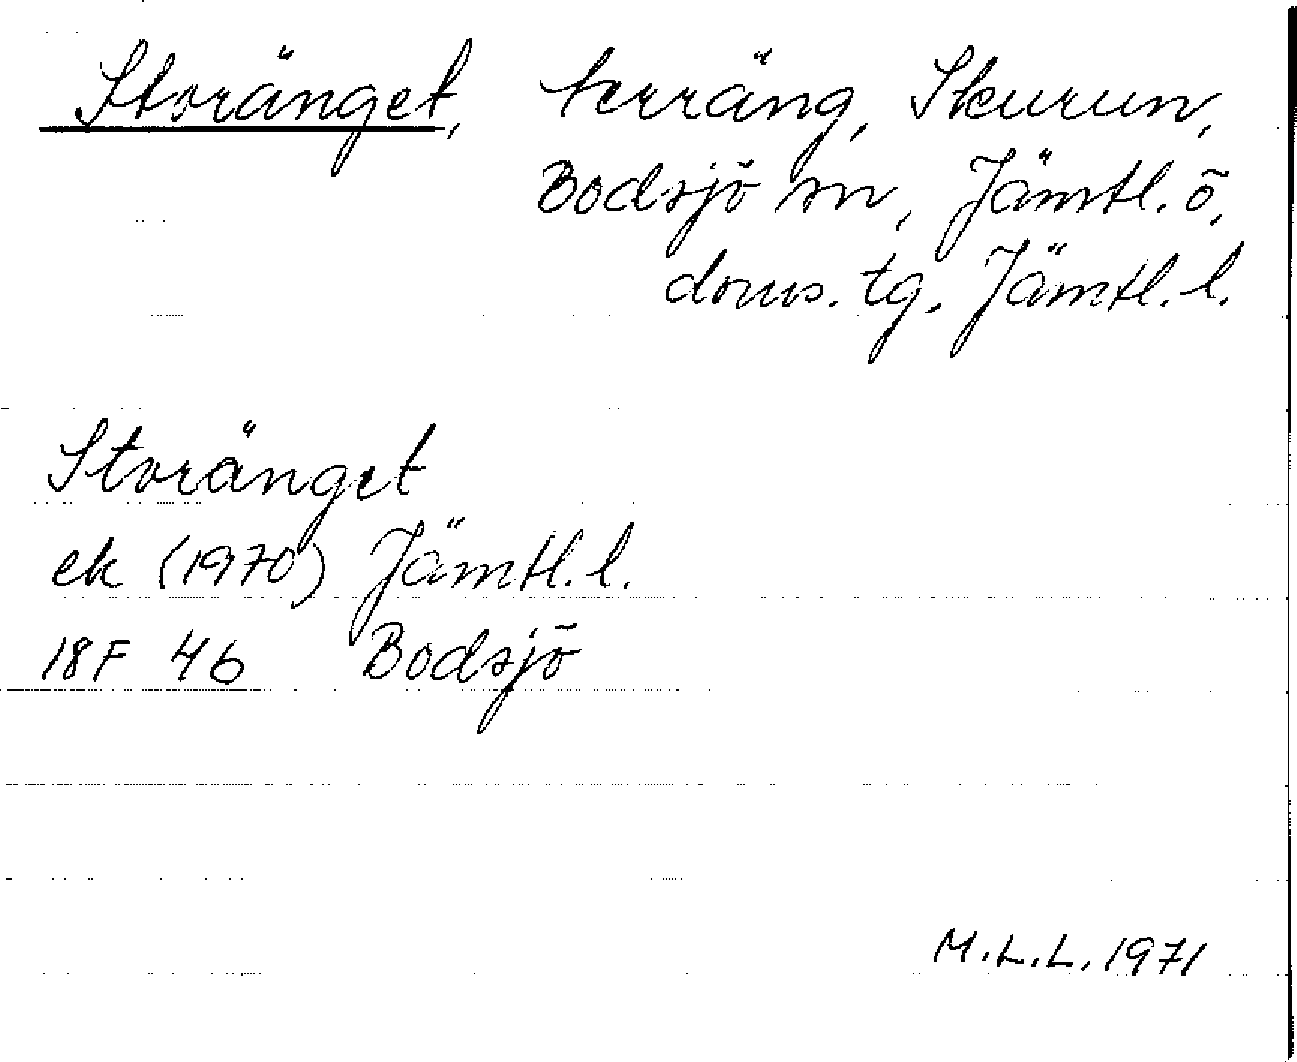 Storänget, terräng, Skurun,
Bodsjö sn, Jämtl. ö,
doms. tg. Jämtl. l.
Storänget
ek (1970) Jämtl. l.
18F 4b Bodsjö
M.L.L. 1971